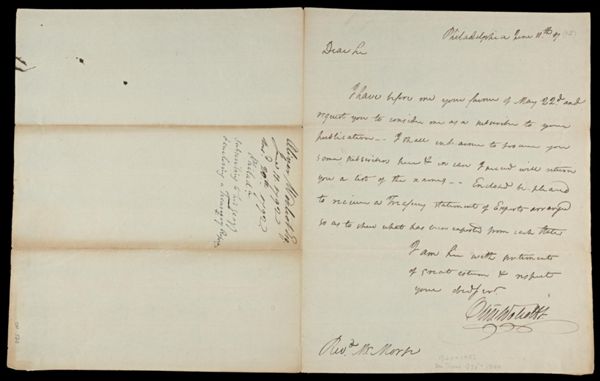 Philadelphia June 11.th 97
Dear Sir
I have before me your favour of May 22d and
request you to consider me as a subscriber to your
publication -- I shall endeavour to procure you
some subscribers here & in case I succeed will return
you a list of the names -- Enclosed be pleased
to receive a Treasury statement of Exports arranged
so as to shew what has been exported from each State
I am Sir with sentiments
of great esteem & respect
your obed servt
Oliv Wolcott
Revd. Mr. Morse
Oliver Wolcott Esq
June 11 1797
Philada
Subscribing to his